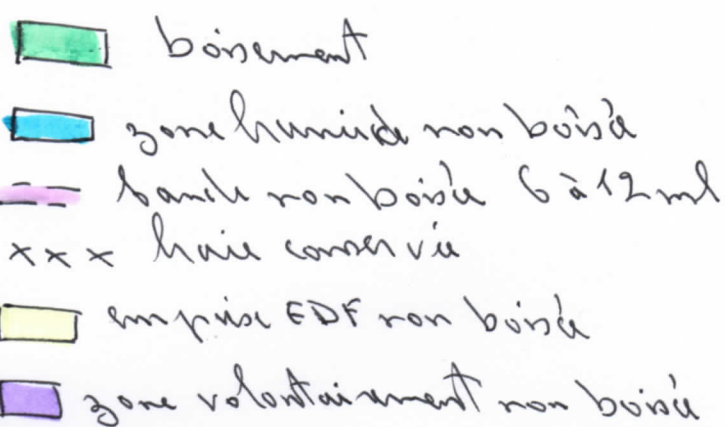 boisement
zone humide non boisée
bande non boisée 6 à 12 ml
xxx haie conservée
emprise EDF non boisée
zone volontairement non boisée